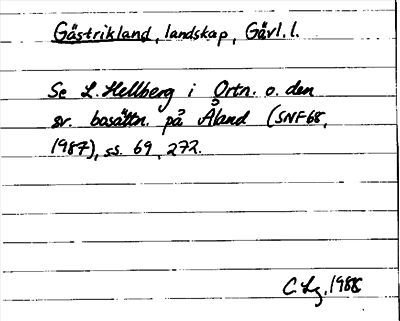 Gästrikland, landskap, Gävl. l.
Se L. Hellberg i Ortn. o. den
sv. bosättn. på Åland (SNF 68,
1987), ss. 69, 272.
C. Lg, 1988